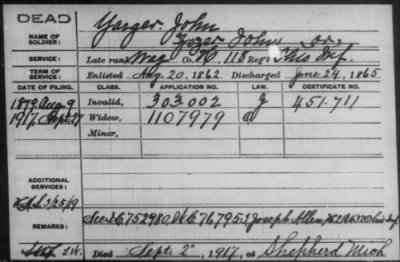 DEAD
Yarger, John
NAME OF SOLDIER:
Yozer John or,
SERVICE:
Late rank Wag Co. H, 118 Reg't Ohio Inf.
TERM OF SERVICE:
Enlisted Aug. 20, 1862 Discharged June 24, 1865
DATE OF FILING. CLASS. APPLICATION NO. LAW. CERTIFICATE NO.
1879 Aug. 9 Invalid, 303.002 J 451.711
1917, Sept. 27 Widow, 1107979 a
Minor,
ADDITIONAL SERVICES:
3/25/19
REMARKS:
Joseph Allen
Died Sept. 2", 1917, at Shepherd Mich